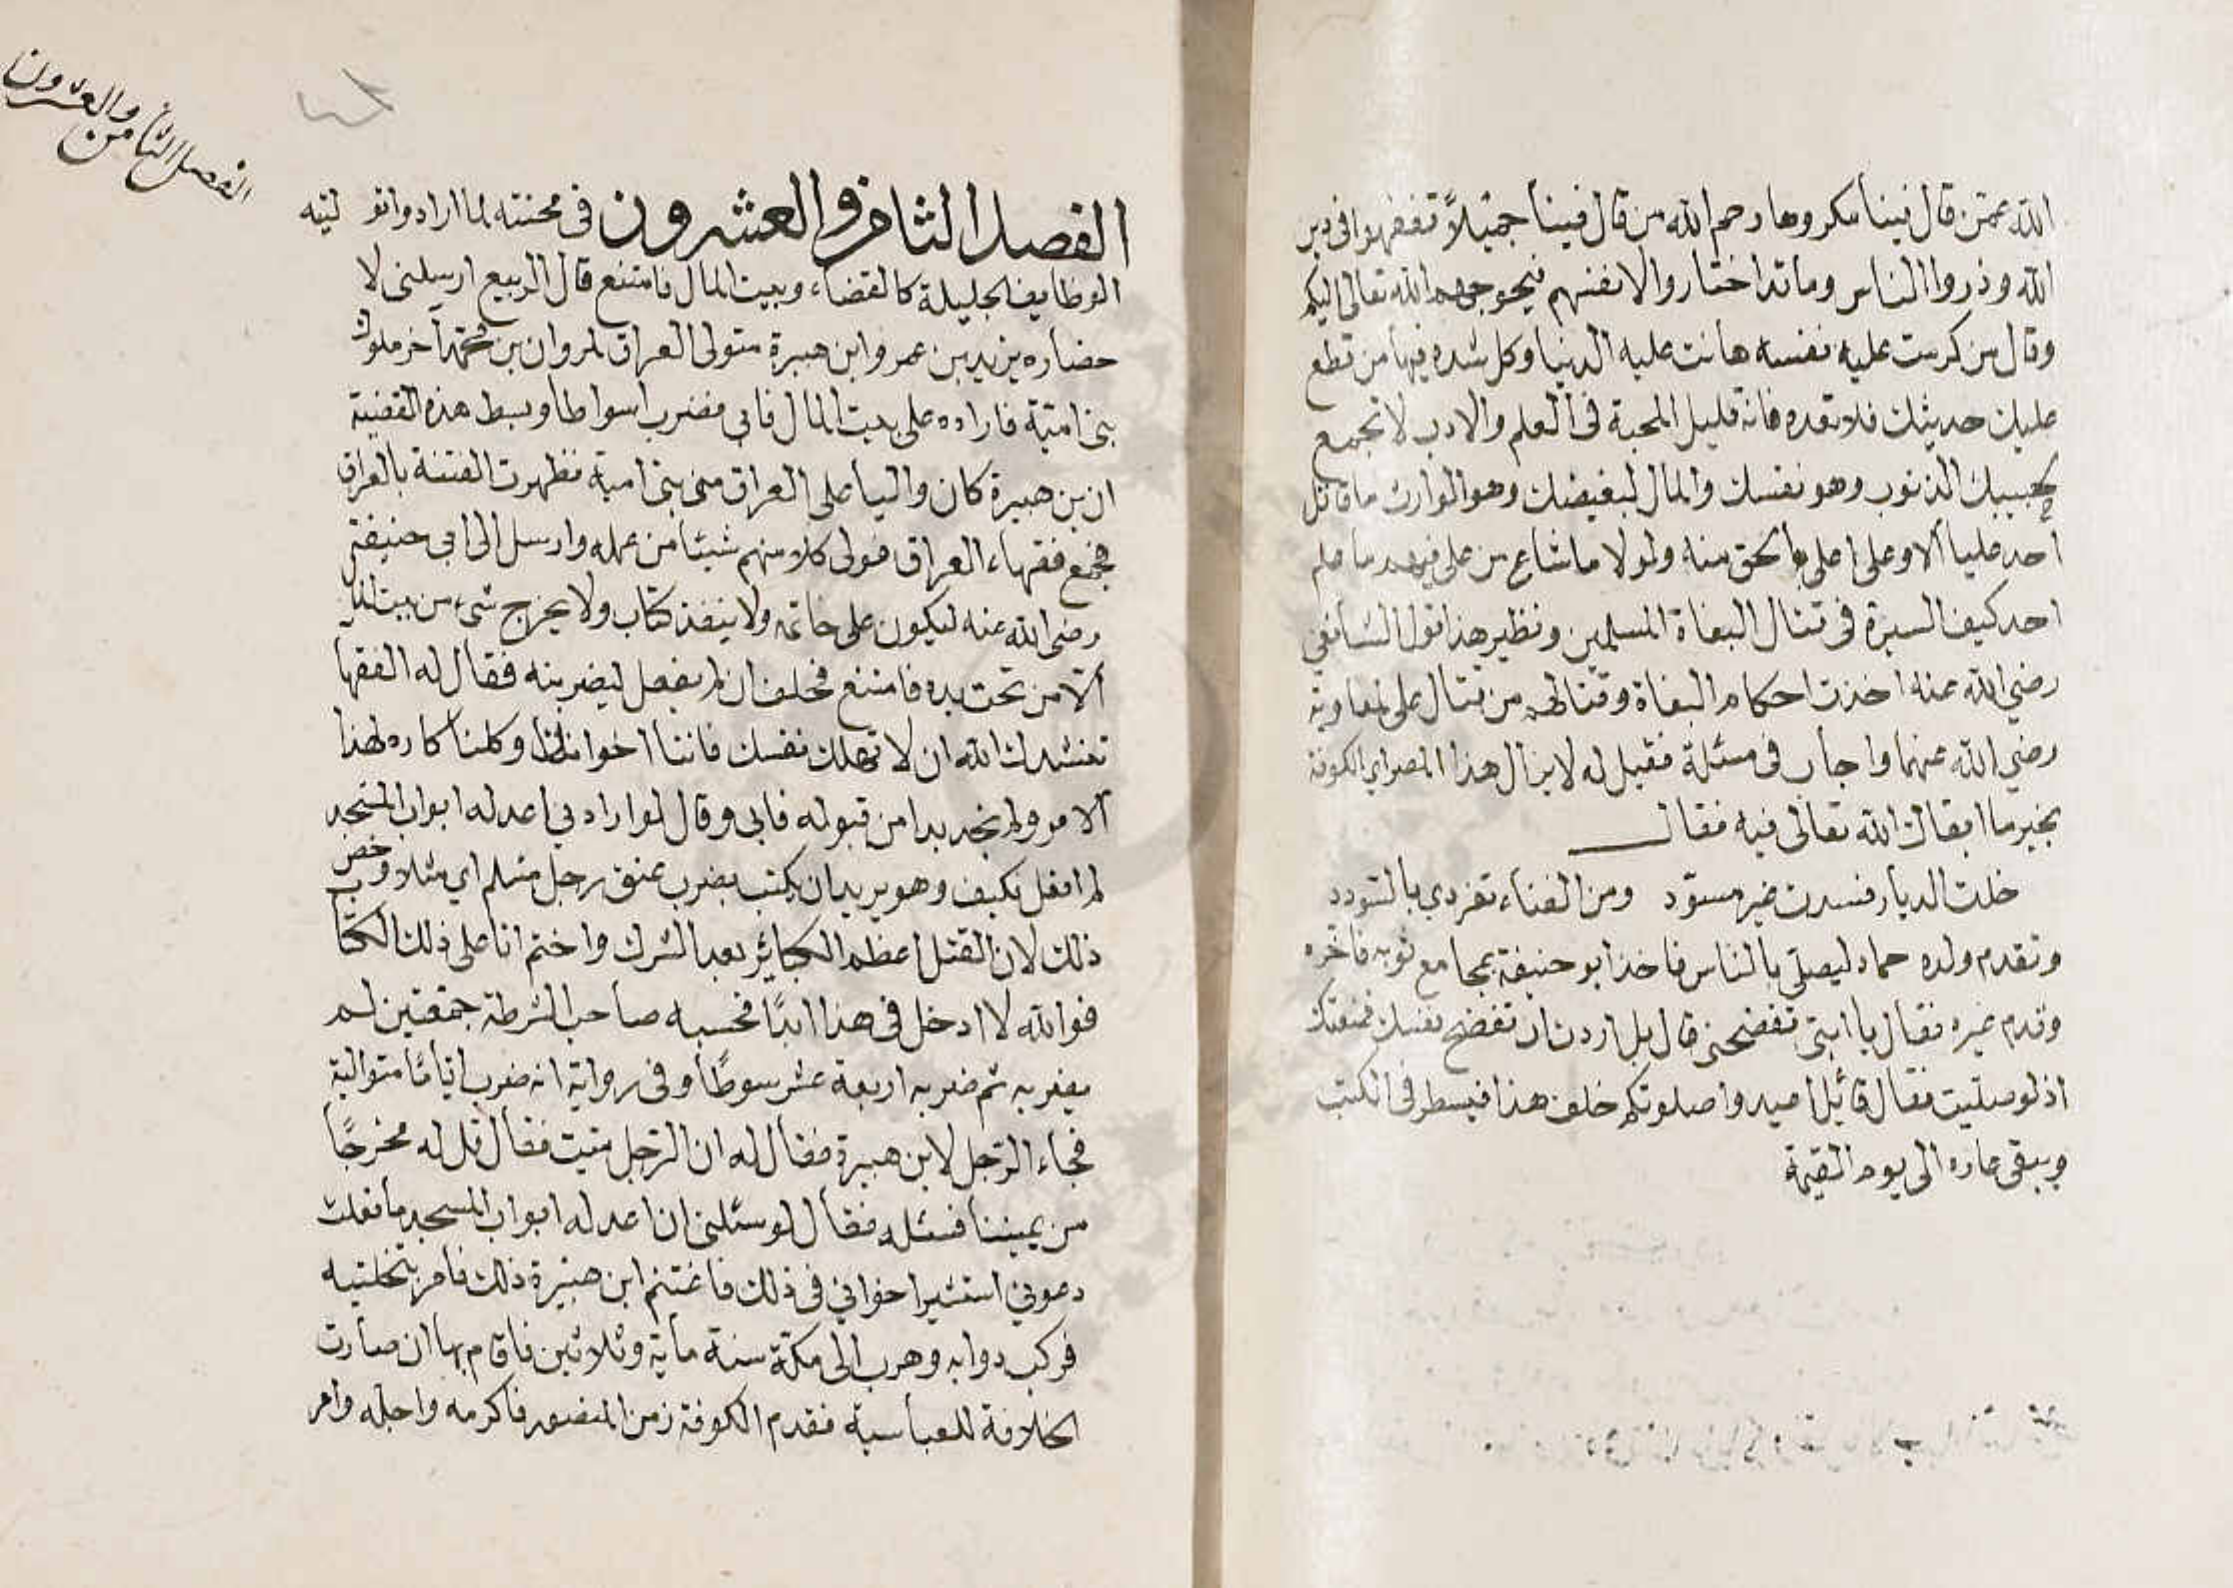 الله عمّن قال فينا مكروها رحم الله من قال فينا جميلاً تفقهوا فى دين
الله وذروا الناس وما قد اختاروا لانفسهم فيحوجهم الله تعالى اليكم
وقال من كرمت عليه نفسه هانت عليه الدنيا وكل شده فيها من قطع
عليك حديثك فلا تعده فانه قليل المحبة فى العلم والادب لا تجمع
لحبيبك الذنوب وهو نفسك والمال لبغيضك وهو الوارث ما قاتل
احد عليا الا وعلى اعلى بالحق منه ولولا ما شاع من على فيهم ما علم
احد كيف السيرة فى قتال البغاة المسلمين ونظير هذا قول الشافعى
رضي الله عنه اخذت احكام البغاة وقتالهم من قتال على لمعاوية
رضي الله عنهما واجاب فى مسئلة فقيل له لا يزال هذا المصر اي الكوفة
بخير ما ابقاك الله تعالى فيه فقال
خلت الديار فسدت غير مسوّد ومن العناء تفردي بالسودد
وتقدم ولده حماد ليصلّي بالناس فاخذ ابو حنيفة بمجامع ثوبه فاخره
وقدم غيره فقال يا ابتى تفضحنى قال بل اردت ان تفضح نفسك فمنعتك
اذ لو صلّيت فقال قائل اعيدوا صلوتكم خلف هذا فيسطر فى الكتب
ويبقى عاره الى يوم القيمة
الفصل الثامن والعشرون
الفصل الثامن والعشرون فى محنته لما ارادوا توليته
الوظايف الجليلة كالقضاء وبيت المال فامتنع قال الربيع ارسلنى لا
حضاره يزيد بن عمرو ابن هبيرة متولى العراق لمروان بن محمّد آخر ملوك
بنى اميّة فاراده على بيت المال فابى فضرب اسواطا وبسط هذه القضية
ان بن هبيرة كان واليا على العراق من بنى امية فظهرت الفتنة بالعراق
فجمع فقهاء العراق فولى كلا منهم شيئا من عمله وارسل الى ابى حنيفة
رضى الله عنه ليكون على خاتمه ولا ينفذ كتاب ولا يخرج شىء من بيت المال
الّا من تحت يده فامتنع فحلف ان لم يفعل ليضربنه فقال له الفقها
ننشدك الله ان لا تهلك نفسك فاننا اخوانك وكلنا كاره لهذا
الامر ولم نجد بدا من قبوله فابى وقال لو ارادني اعد له ابواب المسجد
لم افعل فكيف وهو يريد ان يكتب بضرب عنق رجل مسلم اي مثلا وخص
ذلك لان القتل اعظم الكبائر بعد الشرك واختم انا على ذلك الكتاب
فوالله لا ادخل فى هذا ابدًا فحبسه صاحب الشرطة جمعتين لم
يضربه ثم ضربه اربعة عشر سوطًا وفى رواية انه ضرب ايّامًا متوالية
فجاء الرّجل لابن هبيرة فقال له ان الرّجل ميّت فقال قل له مخرجًا
من يميننا فسئله فقال لو سئلنى ان اعد له ابواب المسجد ما فعلت
دعونى استشير اخوانى فى ذلك فاغتنم ابن هبيرة ذلك فامر بتخليته
فركب دوابه وهرب الى مكّة سنة مأية وثلاثين فاقام بها ان صارت
الخلافة للعباسية فقدم الكوفة زمن المنصور فاكرمه واجله وامر